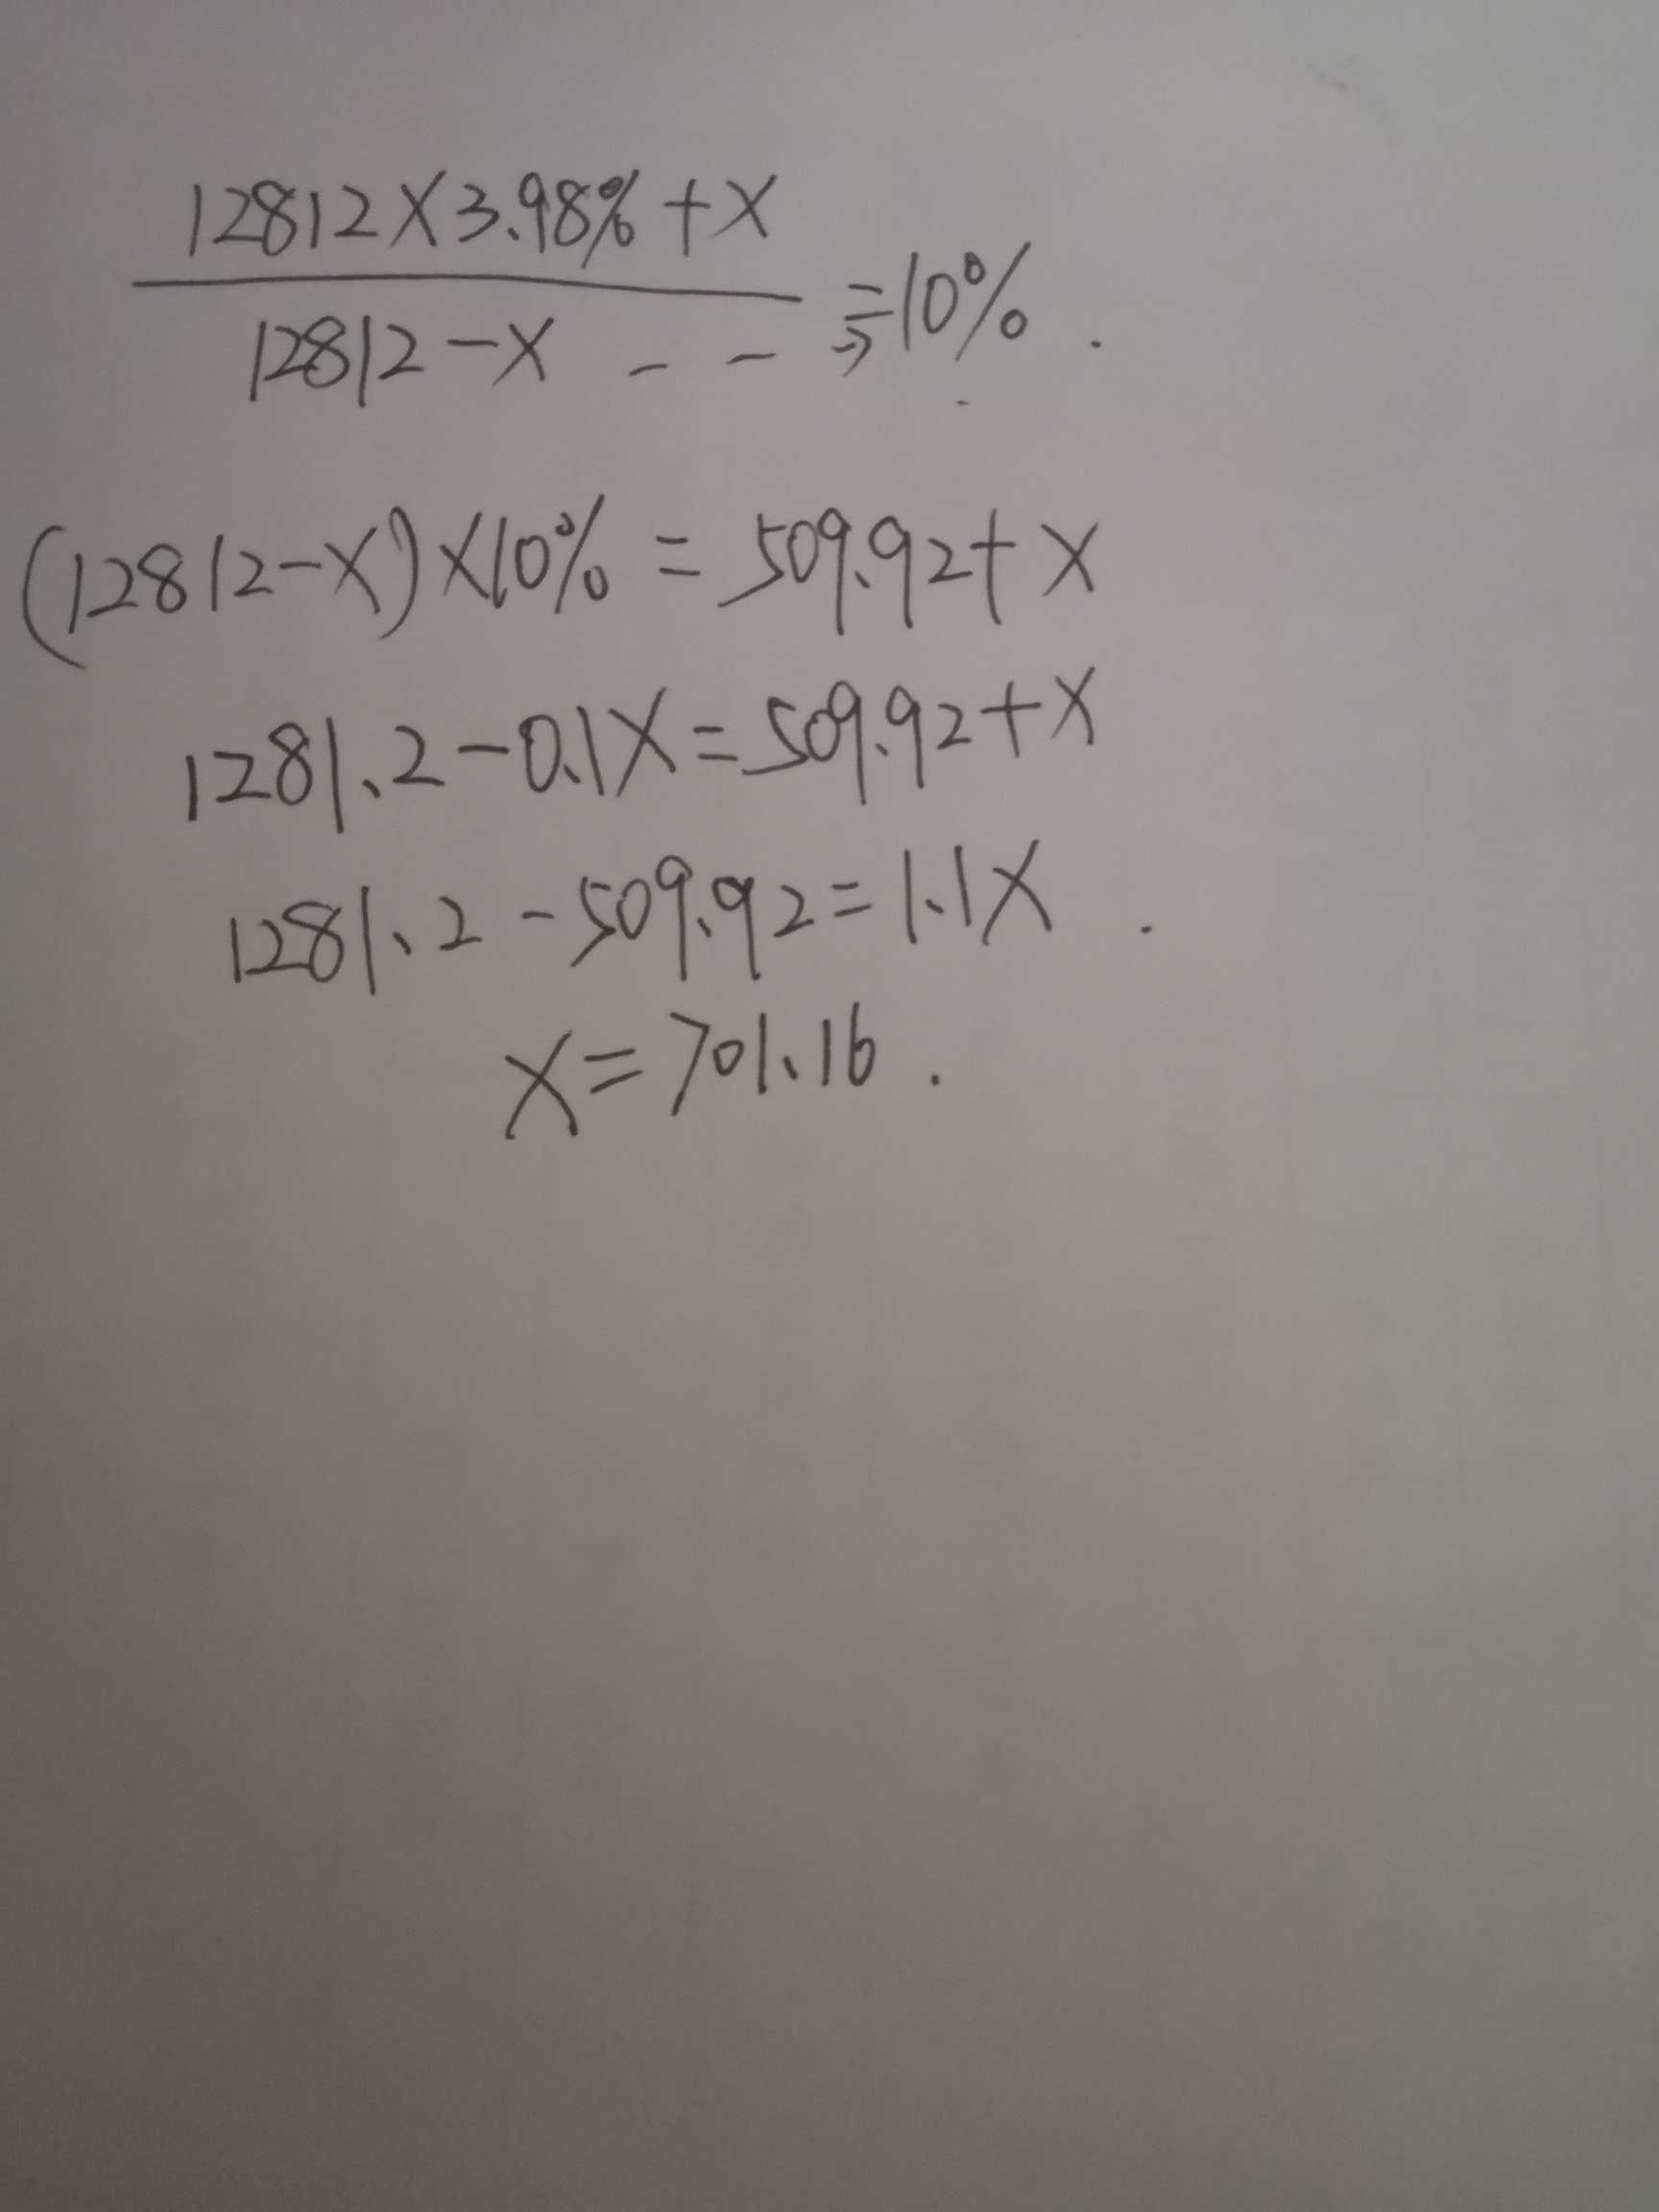 12812×3.98%+X
12812-X - - =10%.
(12812-X)×10% = 509.92+X
1281.2-0.1X=509.92+X
1281.2-509.92=1.1X.
X=701.16.